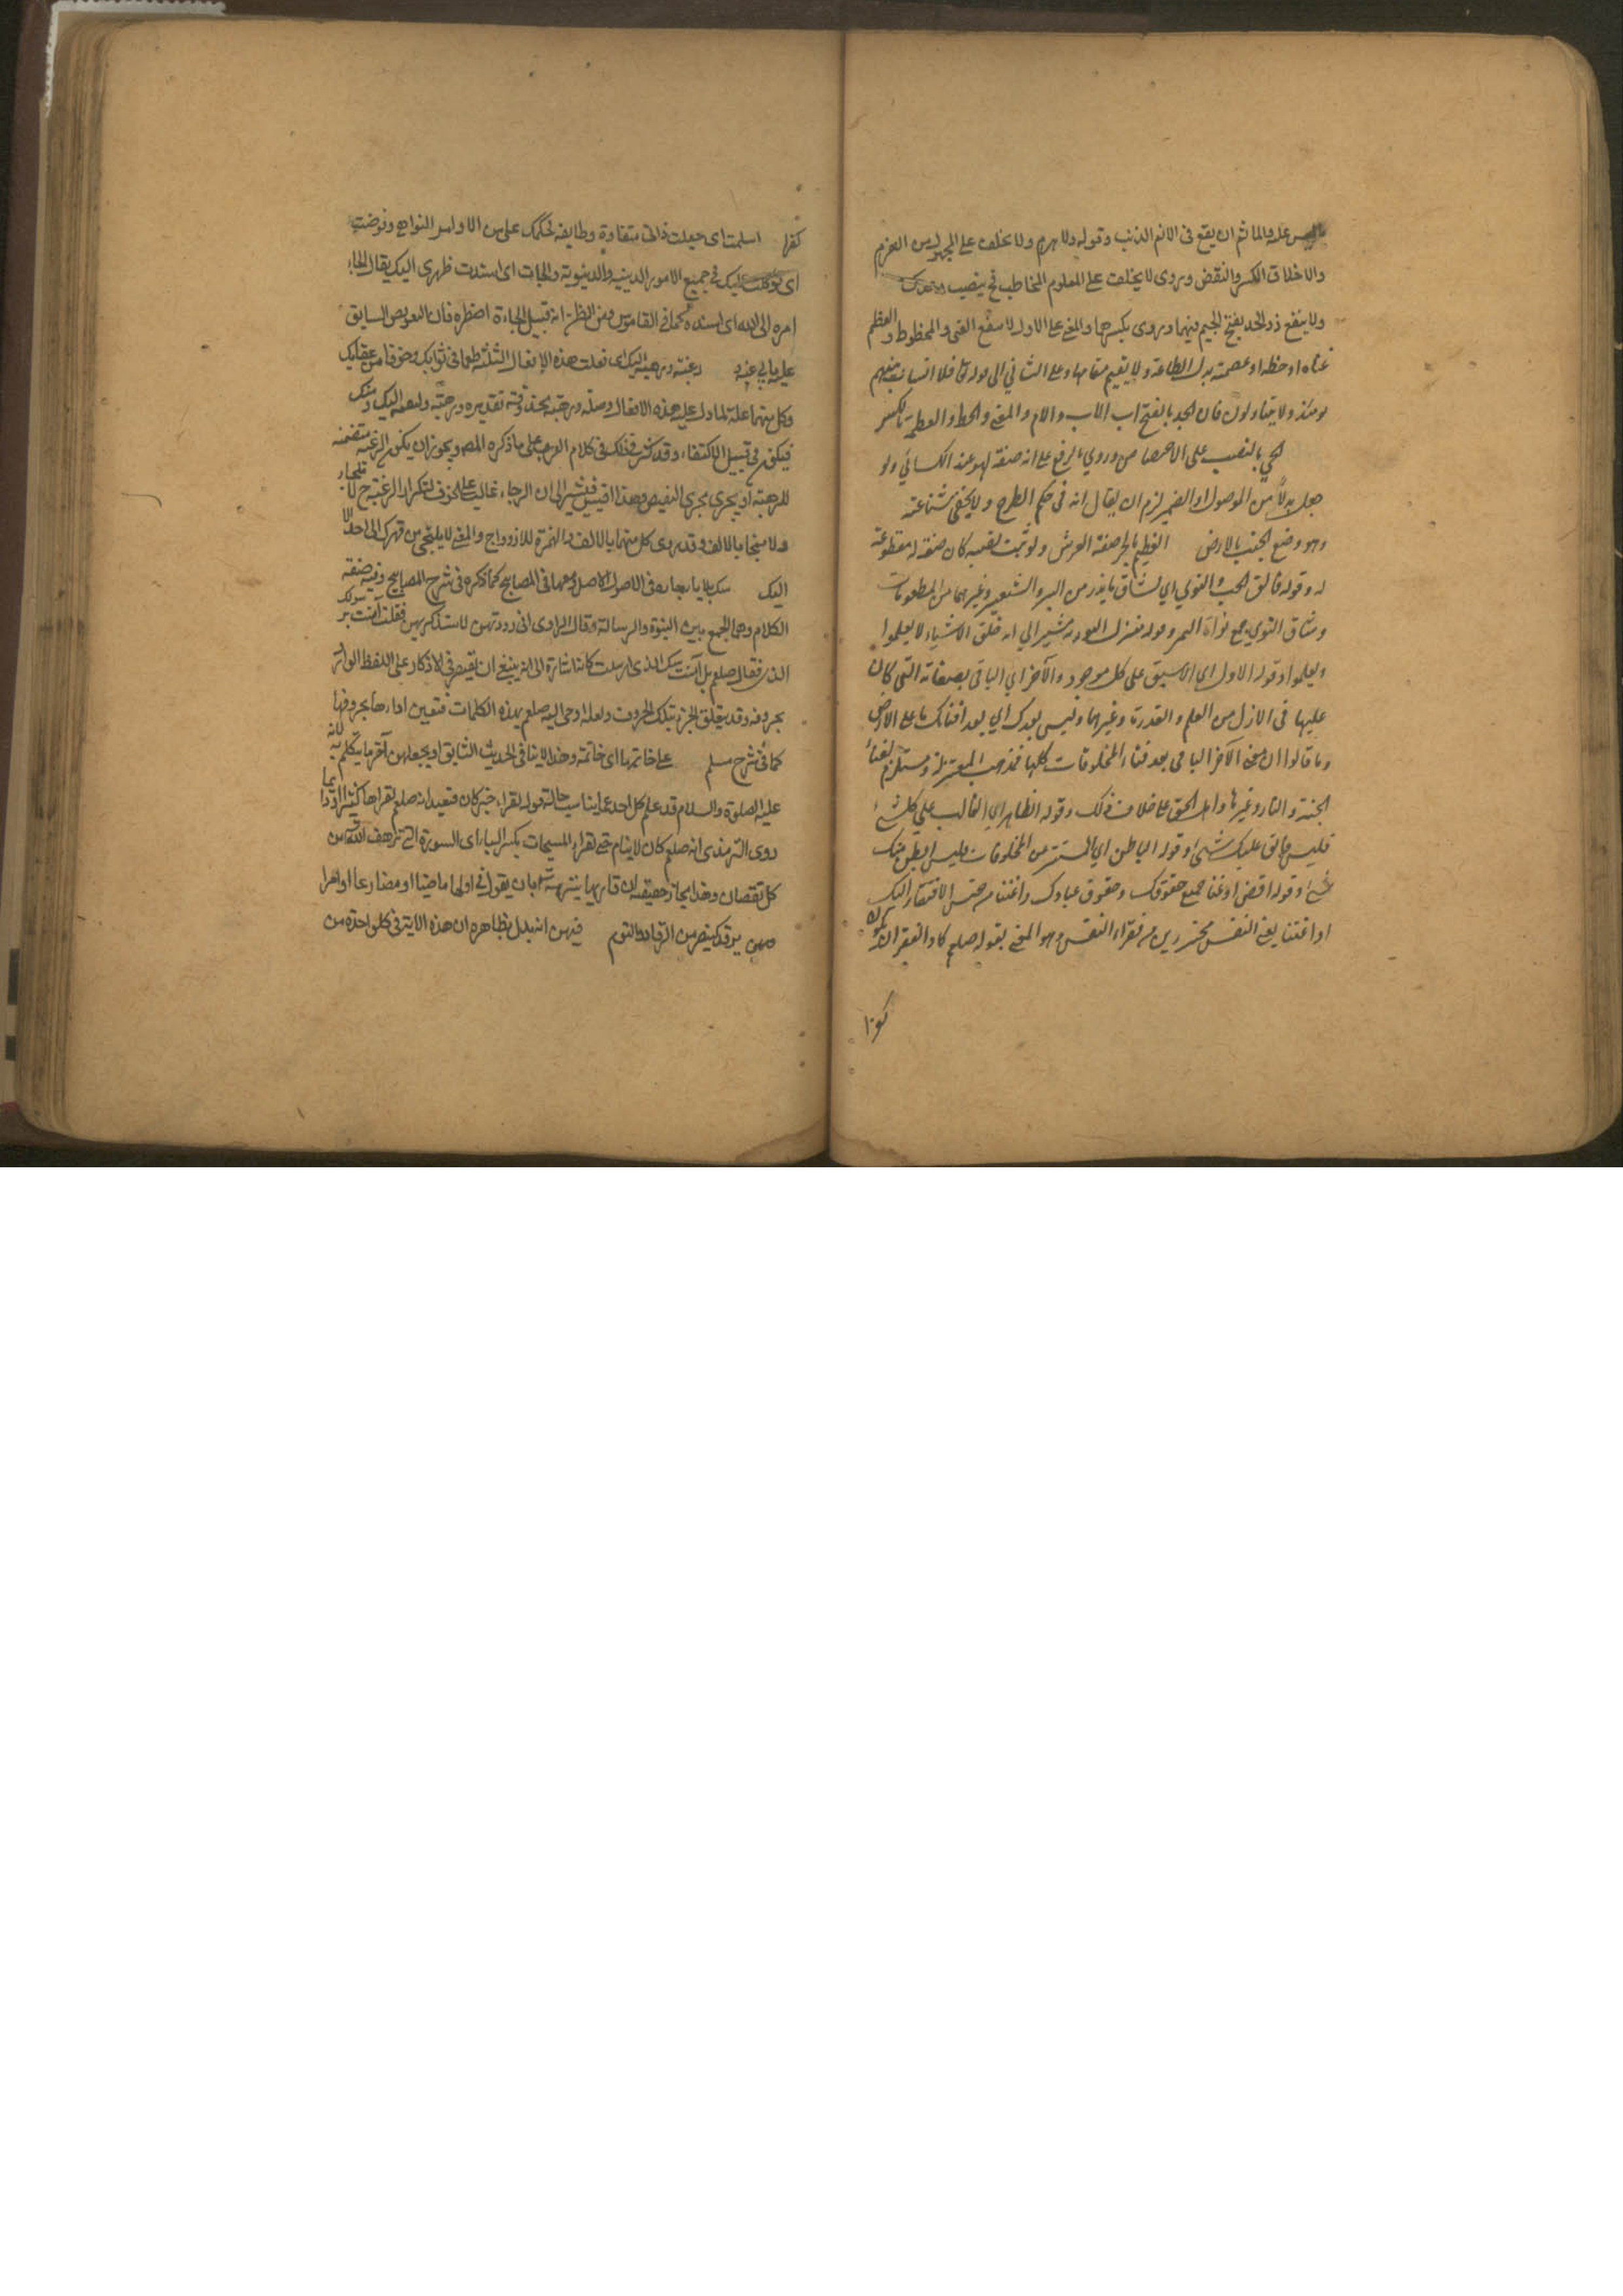 عليه والمأثم ان يقع فى الاثم الذنب وقوله ولا يهزم ولا يخلف على المجهول من الهزم
والاخلاف الكسر والنقض ويروى لا تخلف على المعلوم المخاطب فح ينصب
ولا ينفع ذو الجد بفتح الجيم فيهما ويروى بكسرهما والمعنى على الاول لا ينفع الغنى والمحظوظ والعظم
غناه او حظه او عصمته بدل الطاعة ولا يقيم مقامها وعلى الثانى الى قوله تعا فلا انساب بينهم
يومئذ ولا يتساءلون فان الجد بالفتح اب الاب والام والمعنى والحظ والعظمة بالكسر
الحى بالنصب على الاختصاص وروى بالرفع على انه صفة لهو عند الكسائى ولو
جعل بدلاً من الموصول او الضمير لزم ان يقال انه فى حكم الطرح ولا يخفى شناعته
وهو وضع الجنب بالارض العظيم بالجر صفة العرش ولو ثبت نصبه كان صفة له مقطوعة
له وقوله فالق الحب والنوى اى لشاق ما يذر من البر والشعير وغيرهما من المطعومات
وشاق النوى جمع نواة التمر وقوله منزل التورية يشير الى انه خلق الاشياء لا ليعلموا
ويعلموا وقوله الاول اى الاسبق على كل موجود والآخر اى الباقى بصفاته التى كان
عليها فى الازل من العلم والقدرة وغيرهما وليس بعدك اى بعد افنائك ما على الارض
وما قالوا ان معنى الآخر الباقى بعد فناء المخلوقات كلها فمذهب المعتزلة ومستلزم لفناء
الجنة والنار وغيرها واهل الحق على خلاف ذلك وقوله الظاهر اى الغالب على كل شئ
فليس فائق عليك شئ وقوله الباطن اى المستتر من المخلوقات وليس ابطن منك
شئ وقوله اقض او عنا جميع حقوقك وحقوق عبادك واغننا من جنس الافتقار اليك
او اغننا يعنى النفس محترزين من فقراء النفس وهو المعنى بقوله صلعم كاد الفقر ان
يكون
كفرا
كفرا اسلمت اى جعلت ذاتى منقادة وطايفة لحكمك على من الاوامر النواهى وفوضت
اى توكلت عليك فى جميع الامور الدينية والدنيوية والجات اى اسندت ظهرى اليك يقال الجاء
امره الى الله اى اسنده كما فى القاموس ومن النظر انه قبيل الجاءة اضطره فان التعويض السابق
عليه يابى عنه رغبة ورهبة اليك اى فعلت هذه الافعال الثلثة طمعا فى ثوابك وخوفا من عقابك
وكل منهما علة لما دل عليه هذه الافعال وصلة رهبة محذوفة تقديره ورهبة ولنعمه اليك ومنك
فيكون من قبيل الاكتفاء وقد كثر ذلك فى كلام العرب على ما ذكره المصه ويجوز ان يكون الرغبة متضمنه
للرهبة او يجرى مجرى النقيض وهذا اقيس فيشير الى ان الرجاء غالب على الخوف لتكرار الرغبة ح
ولا منجا بالالف وقد يروى كل منهما بالالف والهمزة للازدواج والمعنى لا يلتجى من قهرك الى احد الا
اليك بنبيك بالباء الجارة فى الاصول الاصل ومهما فى المصابيح كما ذكره فى شرح المصابيح وفيه صنعة
الكلام وهى الجمع بين النبوة والرسالة وقال الراوى انى رددتهن لاستذكرهن فقلت آمنت برسولك
الذى فقال صلعم بل آمنت بنبيك الذى ارسلت كانها اشارة الى انه ينبغى ان يقتصر فى الاذكار على اللفظ الوارد
بحروفه وقد يتعلق الجزء بتلك الحروف ولعله اوحى اليه صلعم بهذه الكلمات فتعين اداءها بحروفها
كما فى شرح مسلم على خاتمها اى خاتمة وهذا لا ينافى الحديث السابق او يجعلهن آخر ما يتكلم به لانه
عليه الصلوة والسلام قد علم كل احد بما يناسب حاله قوله لقراء خبر كان فيفيد انه صلعم يقراها كثيرا او دايما
روى الترمذى انه صلعم كان لا ينام حتى يقراء المسبحات بكسر الباء اى السورة التى تزهف الله من
كل نقصان وهذا مجاز حقيقة ان قاريها ينزهه تعا بان يقول فى اولها ماضيا او مضارعا او امرا
وهن يرقد كينصر من الرقاد والنوم فيهن اية يدل بظاهره ان هذه الاية فى كل واحدة من